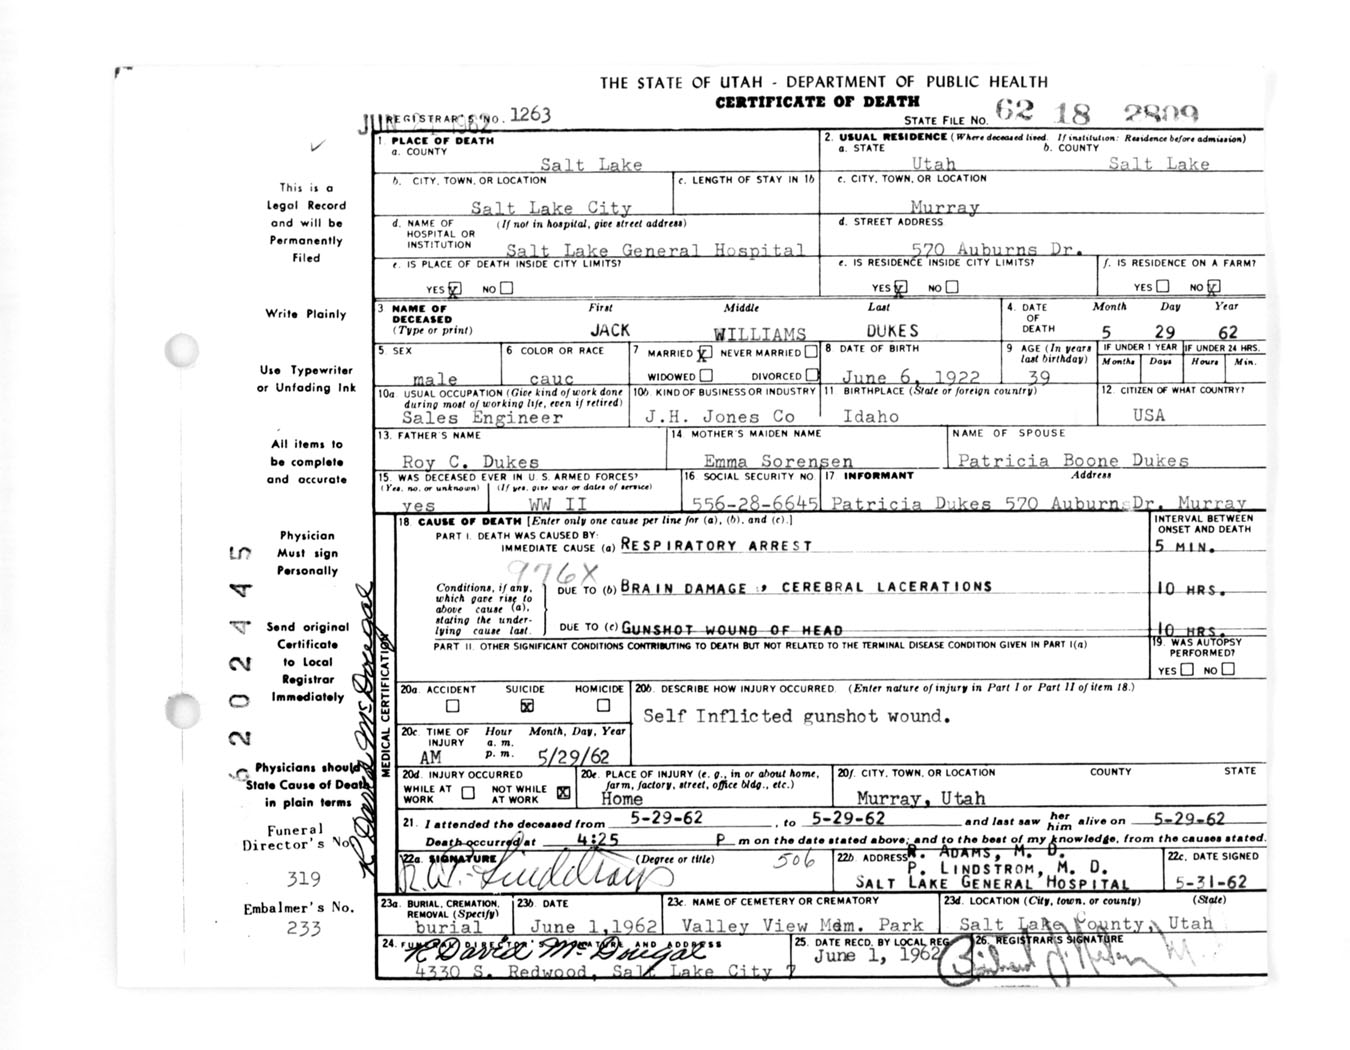 THE STATE OF UTAH - DEPARTMENT OF PUBLIC HEALTH
CERTIFICATE OF DEATH
REGISTRAR'S NO. 1263
STATE FILE NO. 62 18 2809
JUN 1962
1. PLACE OF DEATH
a. COUNTY
Salt Lake
2. USUAL RESIDENCE (Where deceased lived. If institution: Residence before admission)
a. STATE b. COUNTY
Utah Salt Lake
b. CITY, TOWN, OR LOCATION
Salt Lake City
c. LENGTH OF STAY IN 1b
c. CITY, TOWN, OR LOCATION
Murray
d. NAME OF HOSPITAL OR INSTITUTION (If not in hospital, give street address)
Salt Lake General Hospital
d. STREET ADDRESS
570 Auburns Dr.
e. IS PLACE OF DEATH INSIDE CITY LIMITS?
YES X NO
e. IS RESIDENCE INSIDE CITY LIMITS?
YES X NO
f. IS RESIDENCE ON A FARM?
YES NO X
3 NAME OF DECEASED (Type or print)
First Middle Last
JACK WILLIAMS DUKES
4. DATE OF DEATH
Month Day Year
5 29 62
5. SEX
male
6 COLOR OR RACE
cauc
7 MARRIED X NEVER MARRIED
WIDOWED DIVORCED
8 DATE OF BIRTH
June 6, 1922
9 AGE (In years last birthday)
39
IF UNDER 1 YEAR
Months Days
IF UNDER 24 HRS.
Hours Min.
10a USUAL OCCUPATION (Give kind of work done during most of working life, even if retired)
Sales Engineer
10b. KIND OF BUSINESS OR INDUSTRY
J.H. Jones Co
11 BIRTHPLACE (State or foreign country)
Idaho
12. CITIZEN OF WHAT COUNTRY?
USA
13. FATHER'S NAME
Roy C. Dukes
14 MOTHER'S MAIDEN NAME
Emma Sorensen
NAME OF SPOUSE
Patricia Boone Dukes
15. WAS DECEASED EVER IN U.S. ARMED FORCES?
(Yes, no, or unknown) (If yes, give war or dates of service)
yes WW II
16. SOCIAL SECURITY NO.
556-28-6645
17 INFORMANT Address
Patricia Dukes 570 Auburns Dr. Murray
MEDICAL CERTIFICATION
18 CAUSE OF DEATH [Enter only one cause per line for (a), (b), and (c).]
INTERVAL BETWEEN ONSET AND DEATH
PART I. DEATH WAS CAUSED BY:
IMMEDIATE CAUSE (a) RESPIRATORY ARREST 5 MIN.
976X
Conditions, if any, which gave rise to above cause (a), stating the underlying cause last.
DUE TO (b) BRAIN DAMAGE, CEREBRAL LACERATIONS 10 HRS.
DUE TO (c) GUNSHOT WOUND OF HEAD 10 HRS.
PART II. OTHER SIGNIFICANT CONDITIONS CONTRIBUTING TO DEATH BUT NOT RELATED TO THE TERMINAL DISEASE CONDITION GIVEN IN PART I(a)
19. WAS AUTOPSY PERFORMED?
YES NO
20a. ACCIDENT SUICIDE X HOMICIDE
20b. DESCRIBE HOW INJURY OCCURRED. (Enter nature of injury in Part I or Part II of item 18.)
Self Inflicted gunshot wound.
20c. TIME OF INJURY Hour a. m. p. m. Month, Day, Year
AM 5/29/62
20d. INJURY OCCURRED
WHILE AT WORK NOT WHILE AT WORK X
20e. PLACE OF INJURY (e. g., in or about home, farm, factory, street, office bldg., etc.)
Home
20f. CITY, TOWN, OR LOCATION COUNTY STATE
Murray, Utah
21. I attended the deceased from 5-29-62, to 5-29-62 and last saw her him alive on 5-29-62
Death occurred at 4:25 P m on the date stated above; and to the best of my knowledge, from the causes stated.
22a. SIGNATURE (Degree or title) 506
22b. ADDRESS R. ADAMS, M. D.
P. LINDSTROM, M. D.
SALT LAKE GENERAL HOSPITAL
22c. DATE SIGNED
5-31-62
23a. BURIAL, CREMATION, REMOVAL (Specify)
burial
23b. DATE
June 1,1962
23c. NAME OF CEMETERY OR CREMATORY
Valley View Mdm. Park
23d. LOCATION (City, town, or county) (State)
Salt Lake County, Utah
24. FUNERAL DIRECTOR'S SIGNATURE AND ADDRESS
R David McDougal
4330 S. Redwood, Salt Lake City 7
25. DATE RECD. BY LOCAL REG.
June 1, 1962
26. REGISTRAR'S SIGNATURE
This is a
Legal Record
and will be
Permanently
Filed
Write Plainly
Use Typewriter
or Unfading Ink
All items to
be complete
and accurate
Physician
Must sign
Personally
Send original
Certificate
to Local
Registrar
Immediately
Physicians should
State Cause of Death
in plain terms
Funeral
Director's No.
319
Embalmer's No.
233
R David McDougal